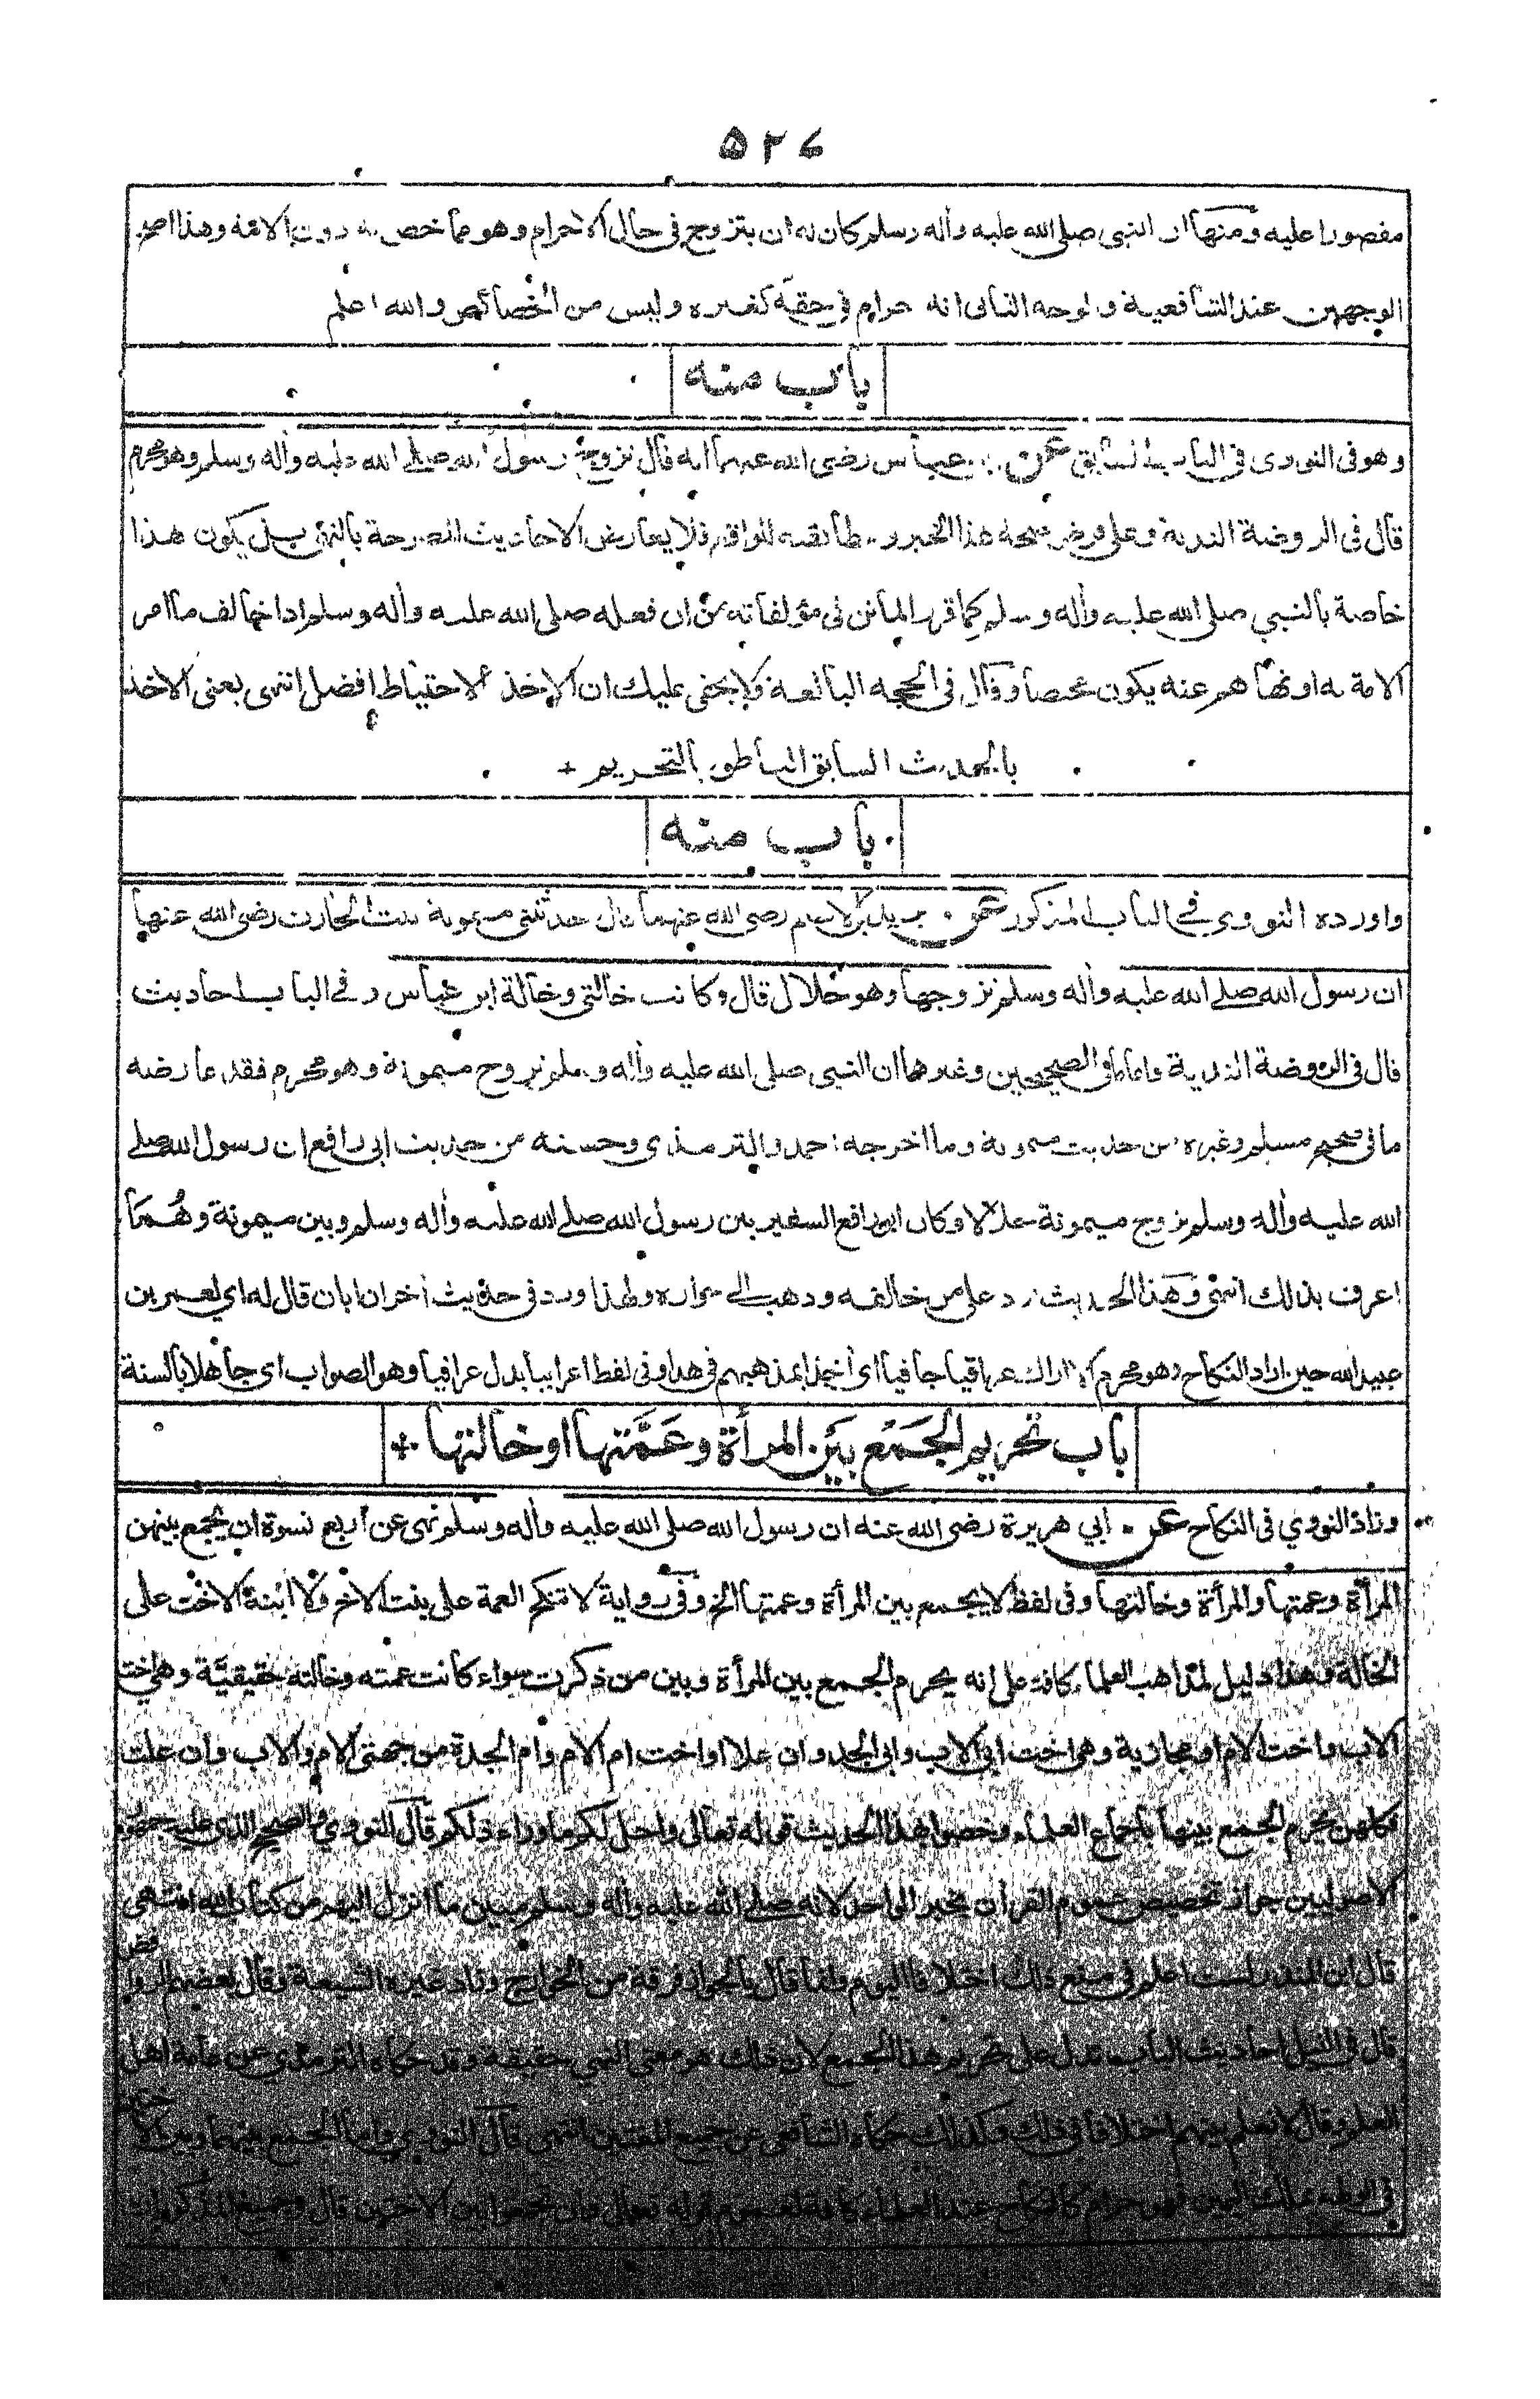 ٥٢٤
مقصورا عليه ومنها ان النبى صلى الله عليه وأله وسلم كان له ان يتزوج فى حال الاحرام وهو مما خص به دون الامة وهذا اصح
الوجهين عند الشافعية والوجه الثانى انه حرام فى حقه كغيره وليس من الخصائص والله اعلم
باب منه
وهو فى النووى فى الباب السابق عن ابن عباس رضى الله عنهما انه قال تزوج رسول الله صلى الله عليه وأله وسلم وهو محرم
قال فى الروضة الندية وعلى فرض صحة هذا الخبر ومطابقته للواقع فلا يعارض الاحاديث المصرحة بالنهى بل يكون هذا
خاصة بالنبي صلى الله عليه وأله وسلم كما قرر الماتن فى مؤلفاته من ان فعله صلى الله عليه وأله وسلم اذا خالف ما امر
الامة به او نهاهم عنه يكون مختصا وقال فى الحجة البالغة ولا يخفى عليك ان الاخذ بالاحتياط افضل انتهى يعنى الاخذ
بالحديث السابق الناطق بالتحريم +
باب منه
واورده النووى في الباب المذكور عن يزيد بن الاصم رضى الله عنهما قال حدثتنى ميمونة بنت الحارث رضى الله عنها
ان رسول الله صلى الله عليه وأله وسلم تزوجها وهو حلال قال وكانت خالتى وخالة ابن عباس وفي الباب احاديث
قال فى الروضة الندية واما ما فى الصحيحين وغيرهما ان النبى صلى الله عليه وأله وسلم تزوج ميمونة وهو محرم فقد عارضه
ما فى صحيح مسلم وغيره من حديث ميمونة وما اخرجه احمد والترمذى وحسنه من حديث ابى رافع ان رسول الله صلى
الله عليه وأله وسلم تزوج ميمونة حلالا وكان ابو رافع السفير بين رسول الله صلى الله عليه وأله وسلم وبين ميمونة وهُما
اعرف بذلك انتهى وهذا الحديث رد على من خالفه وذهب الى جوازه ولهذا ورد فى حديث أخر ان ابان قال له اي لعمر بن
عبيد الله حين اراد النكاح وهو محرم الا اراك عراقيا جافيا اى أخذا بمذهبهم فى هذا وفى لفظ اعرابيا بدل عراقيا وهو الصواب اى جاهلا بالسنة
باب تحريم الجمع بين المرأة وعَمَّتها او خالتها +
وزاد النووي فى النكاح عن ابي هريرة رضى الله عنه ان رسول الله صلى الله عليه وأله وسلم نهى عن أربع نسوة ان يجمع بينهن
المرأة وعمتها والمرأة وخالتها وفى لفظ لا يجمع بين المرأة وعمتها الخ وفى رواية لا تنكح العمة على بنت الاخ ولا ابنة الاخت على
الخالة وهذا دليل لمذاهب العلماء كافة على انه يحرم الجمع بين المرأة وبين من ذكرت سواء كانت عمته وخالته حقيقيّة وهى اخت
الاب واخت الام او مجازية وهى اخت ابى الاب وابى الجد وان علا او اخت ام الام وام الجدة من جهتى الام والاب وان علت
فكلهن يحرم الجمع بينها باجماع العلماء وخصوا بهذا الحديث قوله تعالى واحل لكم ما وراء ذلكم قال النووي والصحيح الذى عليه جمهور
الاصوليين جواز تخصيص عموم القرأن بخبر الواحد لانه صلى الله عليه وأله وسلم مبين ما انزل اليهم من كتاب الله انتهى
قال ابن المنذر لست اعلم فى منع ذلك اختلافا اليوم وانما قال بالجواز فرقة من الخوارج وزاد غيره الشيعة وقال بعضهم الروافض
قال فى النيل احاديث الباب تدل على تحريم هذا الجمع لان ذلك هو معنى النهى حقيقة وقد حكاه الترمذى عن عامة اهل
العلم وقال لا نعلم بينهم اختلافا فى ذلك وكذلك حكاه الشافعى عن جميع المفتين انتهى قال النووى واما الجمع بينهما وبين الاختين
فى الوطء بملك اليمين فهو حرام كالنكاح عند العلماء كافة لعموم قوله تعالى وان تجمعوا بين الاختين قال وجميع المذكورات